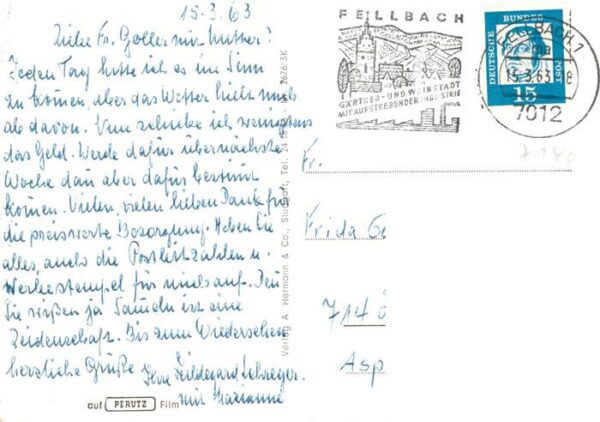 15.3.63
Liebe Fr. Goller mit Mutter!
Jeden Tag hatte ich es im Sinn
zu kommen, aber das Wetter hielt mich
ab davon. Nun schicke ich wenigstens
das Geld. Werde dafür übernächste
Woche dann aber dafür bestimmt
kommen. Vielen, vielen lieben Dank für
die preiswerte Besorgung. Heben Sie
alles, auch die Postleitzahlen u.
Werbestempel für mich auf. Denn
Sie wißen ja Sammeln ist eine
Leidenschaft. Bis zum Wiedersehen
herzliche Grüße
Ihre Hildegard
mit Marianne
auf PERUTZ Film
Verlag A. Hermann & Co., Stuttgart, Tel.
FELLBACH
GÄRTNER- UND WEINSTADT
MIT AUFSTREBENDER INDUSTRIE
DEUTSCHE BUNDESPOST
15
FELLBACH 1
15.3.63
7012
7140
Fr.
Frida G
7140
Asp